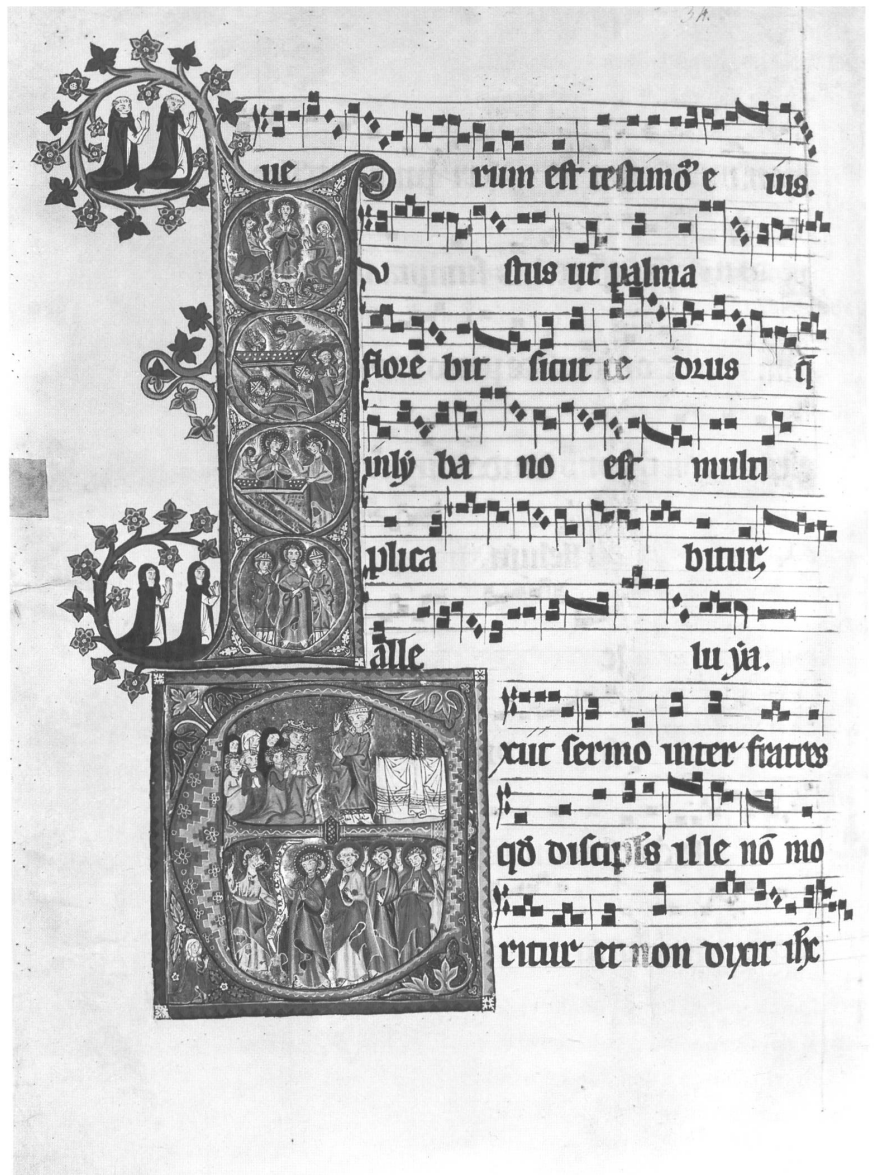 ue rum est testimō e ius.
stus ut palma
flore bit sicut ce drus q̄
in ly ba no est multi
plica bitur,
alle lu ya.
xiit sermo inter fratres
qđ discipls ille nō mo
ritur et non dixit ihc